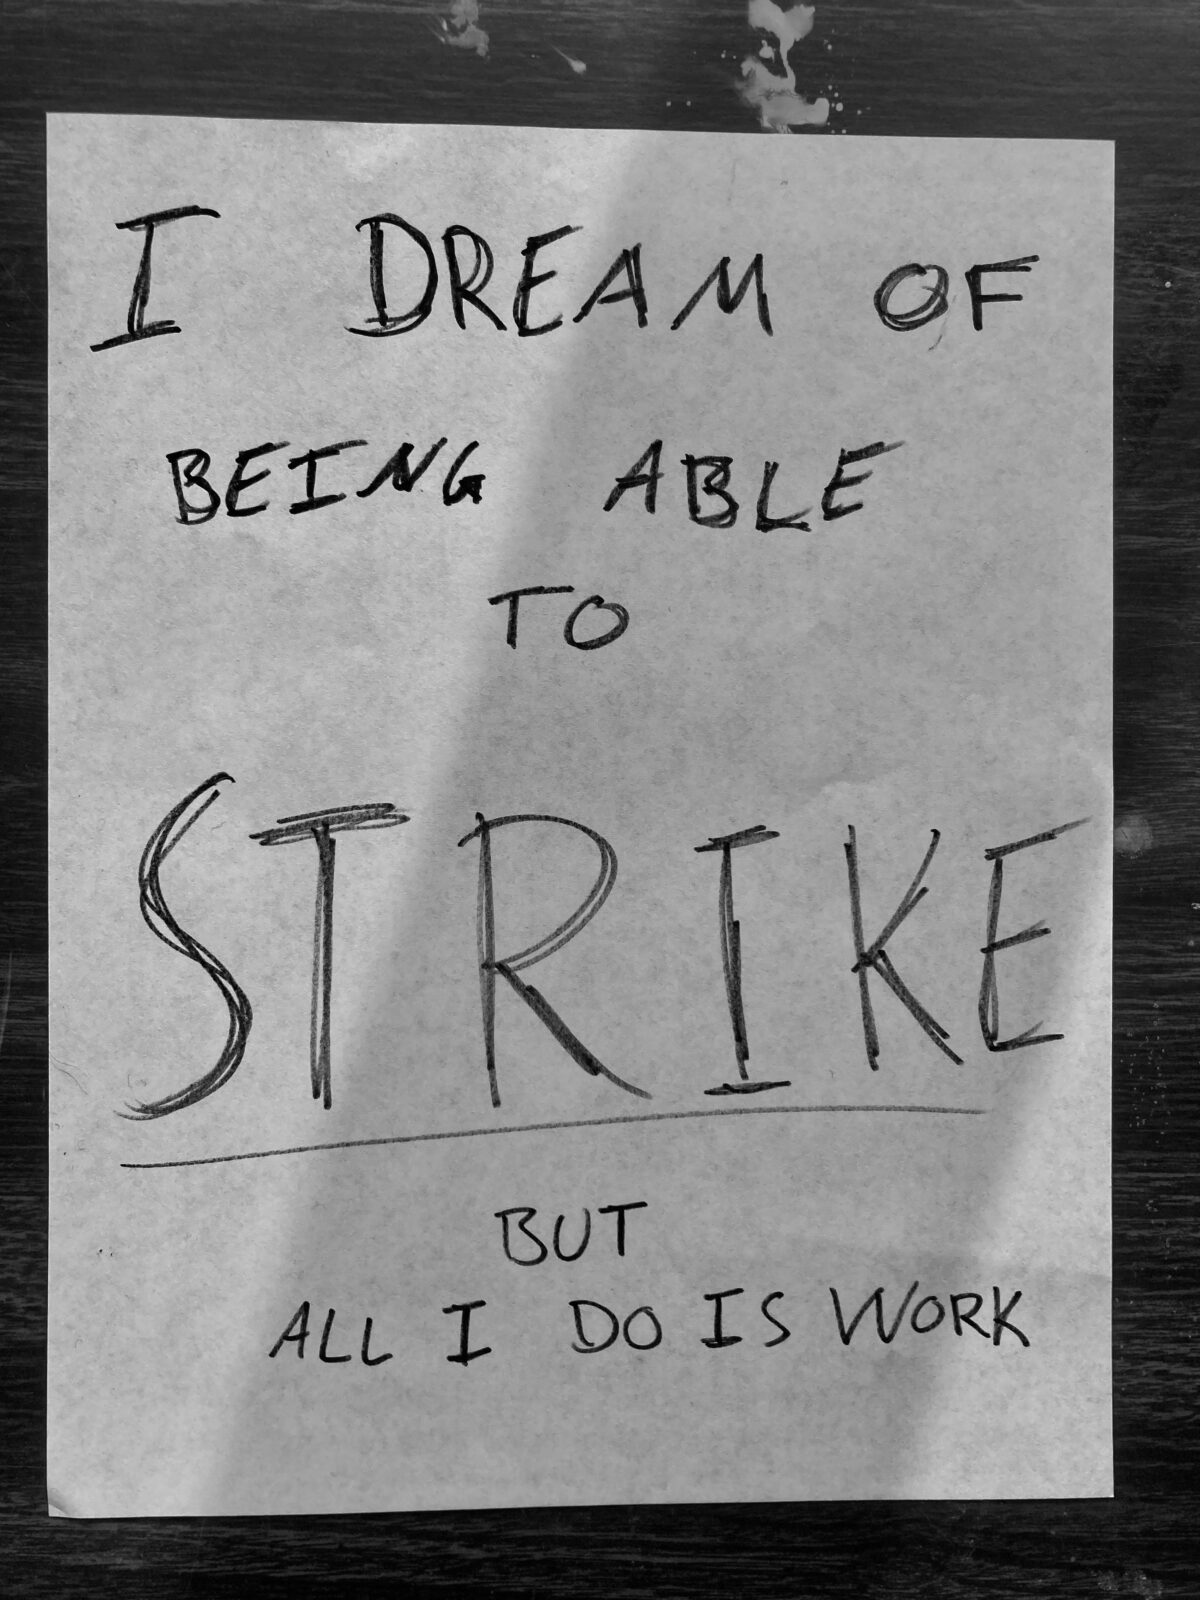 I DREAM OF
BEING ABLE
TO
STRIKE
BUT
ALL I DO IS WORK